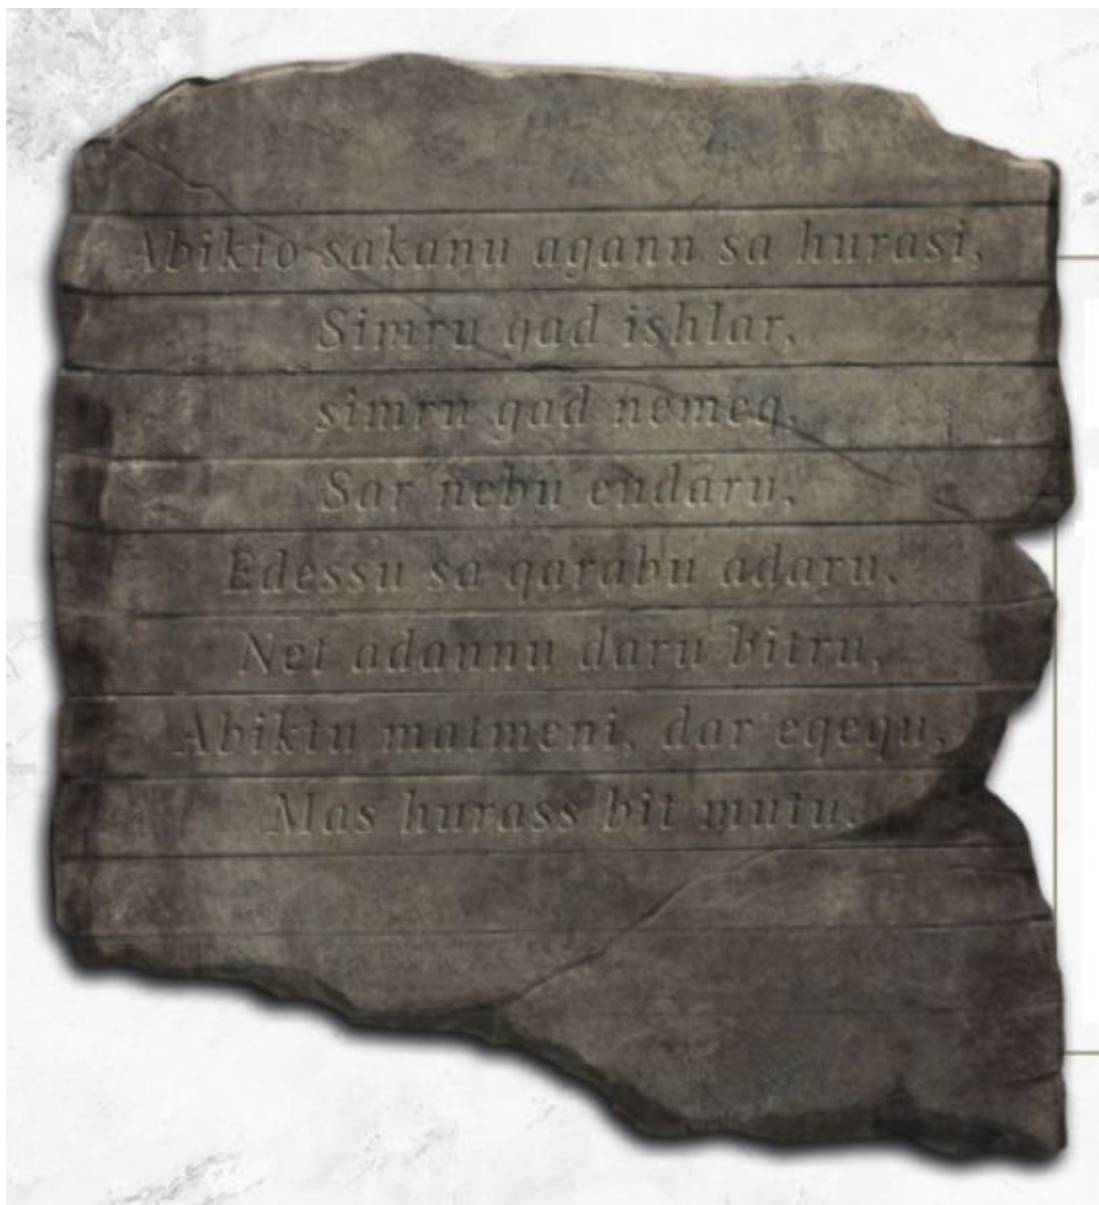 Abikto sakanu agann sa hurasi,
Simru qad ishlar,
simru qad nemeq,
Sar nebu endaru,
Edessu sa qarabu adaru,
Net adannu daru bitru,
Abiktu matmeni, dar eqequ,
Mas hurass bit mutu.